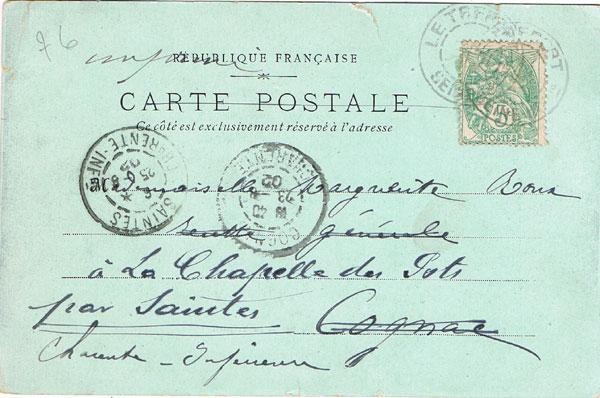 76
RÉPUBLIQUE FRANÇAISE
CARTE POSTALE
Ce côté est exclusivement réservé à l'adresse
LE TRÉPORT
POSTES
SAINTES
CHARENTE-INFRE
25
COGNAC
CHARENTE
Mademoiselle Marguerite Roux
Recette générale
à La Chapelle des Pots
par Saintes Cognac
Charente-Inférieure